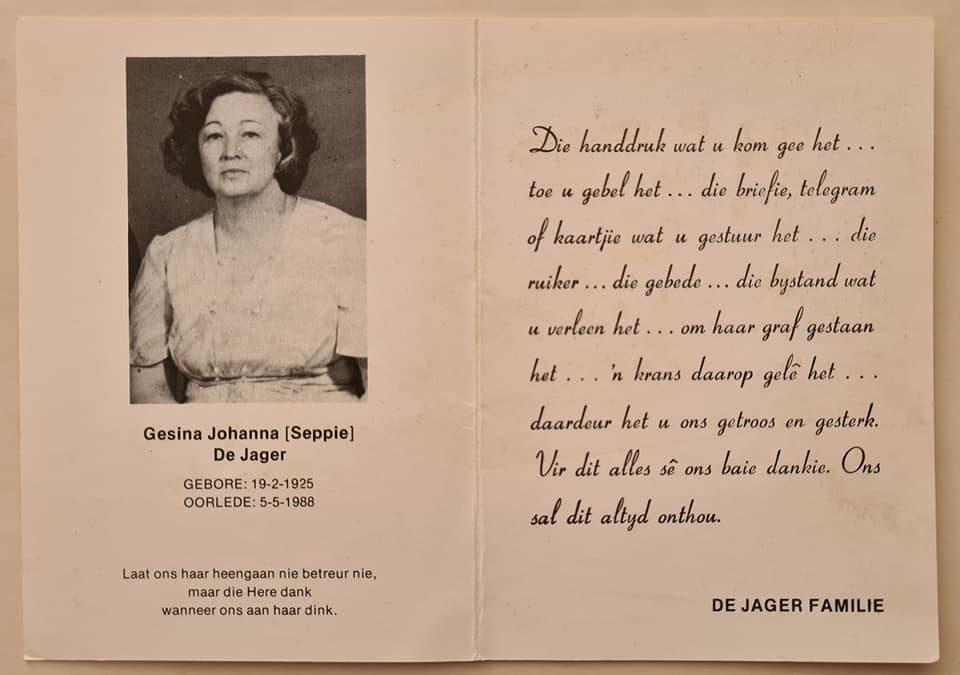 Gesina Johanna [Seppie]
De Jager
GEBORE: 19-2-1925
OORLEDE: 5-5-1988
Laat ons haar heengaan nie betreur nie,
maar die Here dank
wanneer ons aan haar dink.
Die handdruk wat u kom gee het . . .
toe u gebel het . . . die briefie, telegram
of kaartjie wat u gestuur het . . . die
ruiker . . . die gebede . . . die bystand wat
u verleen het . . . om haar graf gestaan
het . . . 'n krans daarop gelê het . . .
daardeur het u ons getroos en gesterk.
Vir dit alles sê ons baie dankie. Ons
sal dit altyd onthou.
DE JAGER FAMILIE